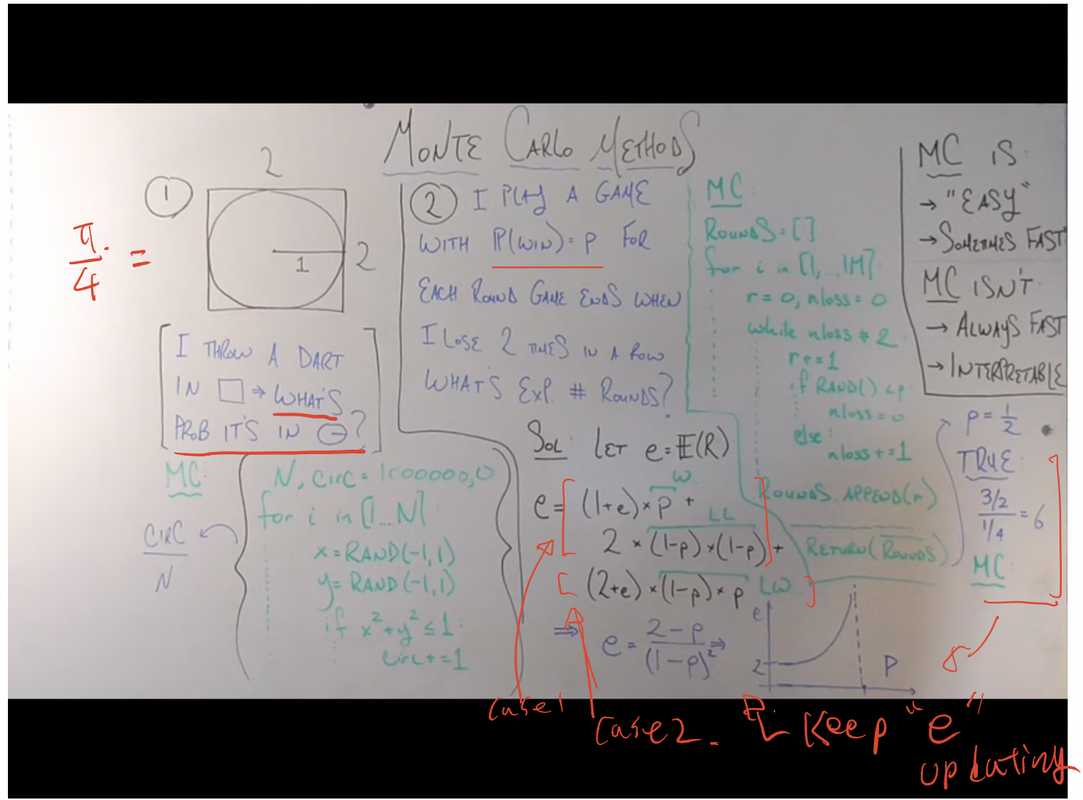 MONTE CARLO METHODS
π/4 =
①
2
1
2
I THROW A DART
IN □ → WHAT'S
PROB IT'S IN ⊖?
MC:
N, CIRC = 1000000,0
for i in [1...N]:
x = RAND(-1,1)
y = RAND(-1,1)
if x²+y² ≤ 1:
circ += 1
CIRC
N
② I PLAY A GAME
WITH P(WIN) = p FOR
EACH ROUND GAME ENDS WHEN
I LOSE 2 TIMES IN A ROW
WHAT'S EXP. # ROUNDS?
SOL: LET e = E(R)
W...
e = (1+e) × p +
LL
2 × (1-p) × (1-p) +
(2+e) × (1-p) × p LW...
⇒ e = (2-p)/(1-p)² ⇒
MC
ROUNDS = []
for i in [1,...1M]:
r = 0, nloss = 0
while nloss ≠ 2
r += 1
if RAND() < p
nloss = 0
else:
nloss += 1
ROUNDS.APPEND(r)
RETURN(ROUNDS)
e
2
P
MC IS:
→ "EASY"
→ SOMETIMES FAST
MC ISN'T:
→ ALWAYS FAST
→ INTERPRETABLE
p = 1/2
TRUE:
3/2
1/4 = 6
MC:
case 1
case 2.
keep "e"
updating